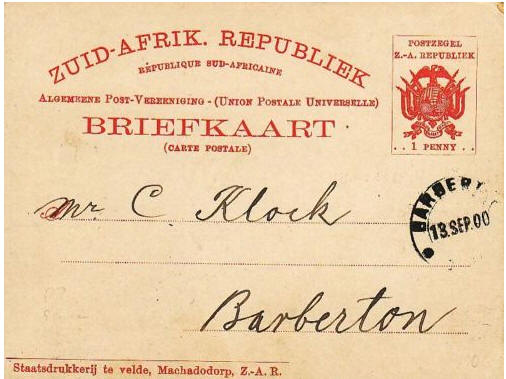 ZUID-AFRIK. REPUBLIEK
RÉPUBLIQUE SUD-AFRICAINE
ALGEMEENE POST-VEREENIGING - (UNION POSTALE UNIVERSELLE)
BRIEFKAART
(CARTE POSTALE)
POSTZEGEL
Z.-A. REPUBLIEK
1 PENNY
Mr. C. Klock
BARBER
13.SEP.00
Barberton
Staatsdrukkerij te velde, Machadodorp, Z.-A. R.